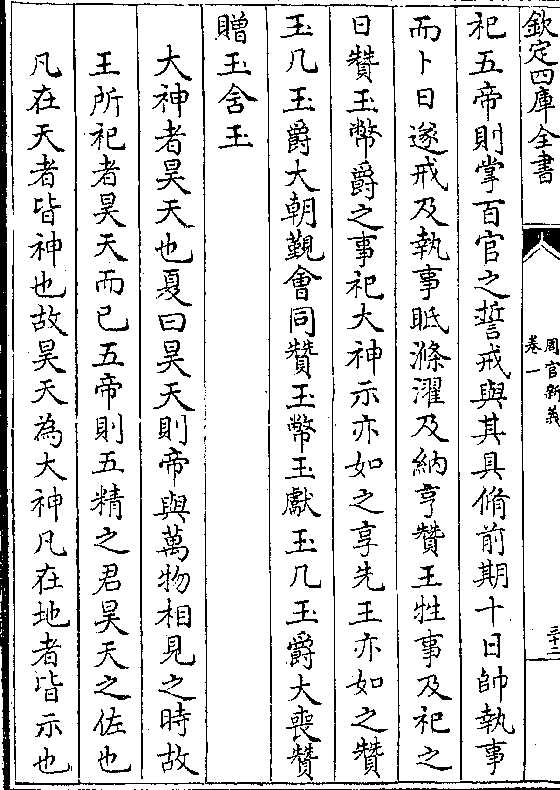 欽定四庫全書
周官新義
卷一
三十二
祀五帝則掌百官之誓戒與其具脩前期十日帥執事
而卜日遂戒及執事眡滌濯及納亨贊王牲事及祀之
日贊玉幣爵之事祀大神示亦如之享先王亦如之贊
玉几玉爵大朝覲會同贊玉幣玉獻玉几玉爵大喪贊
贈玉含玉
大神者昊天也夏曰昊天則帝與萬物相見之時故
王所祀者昊天而已五帝則五精之君昊天之佐也
凡在天者皆神也故昊天為大神凡在地者皆示也